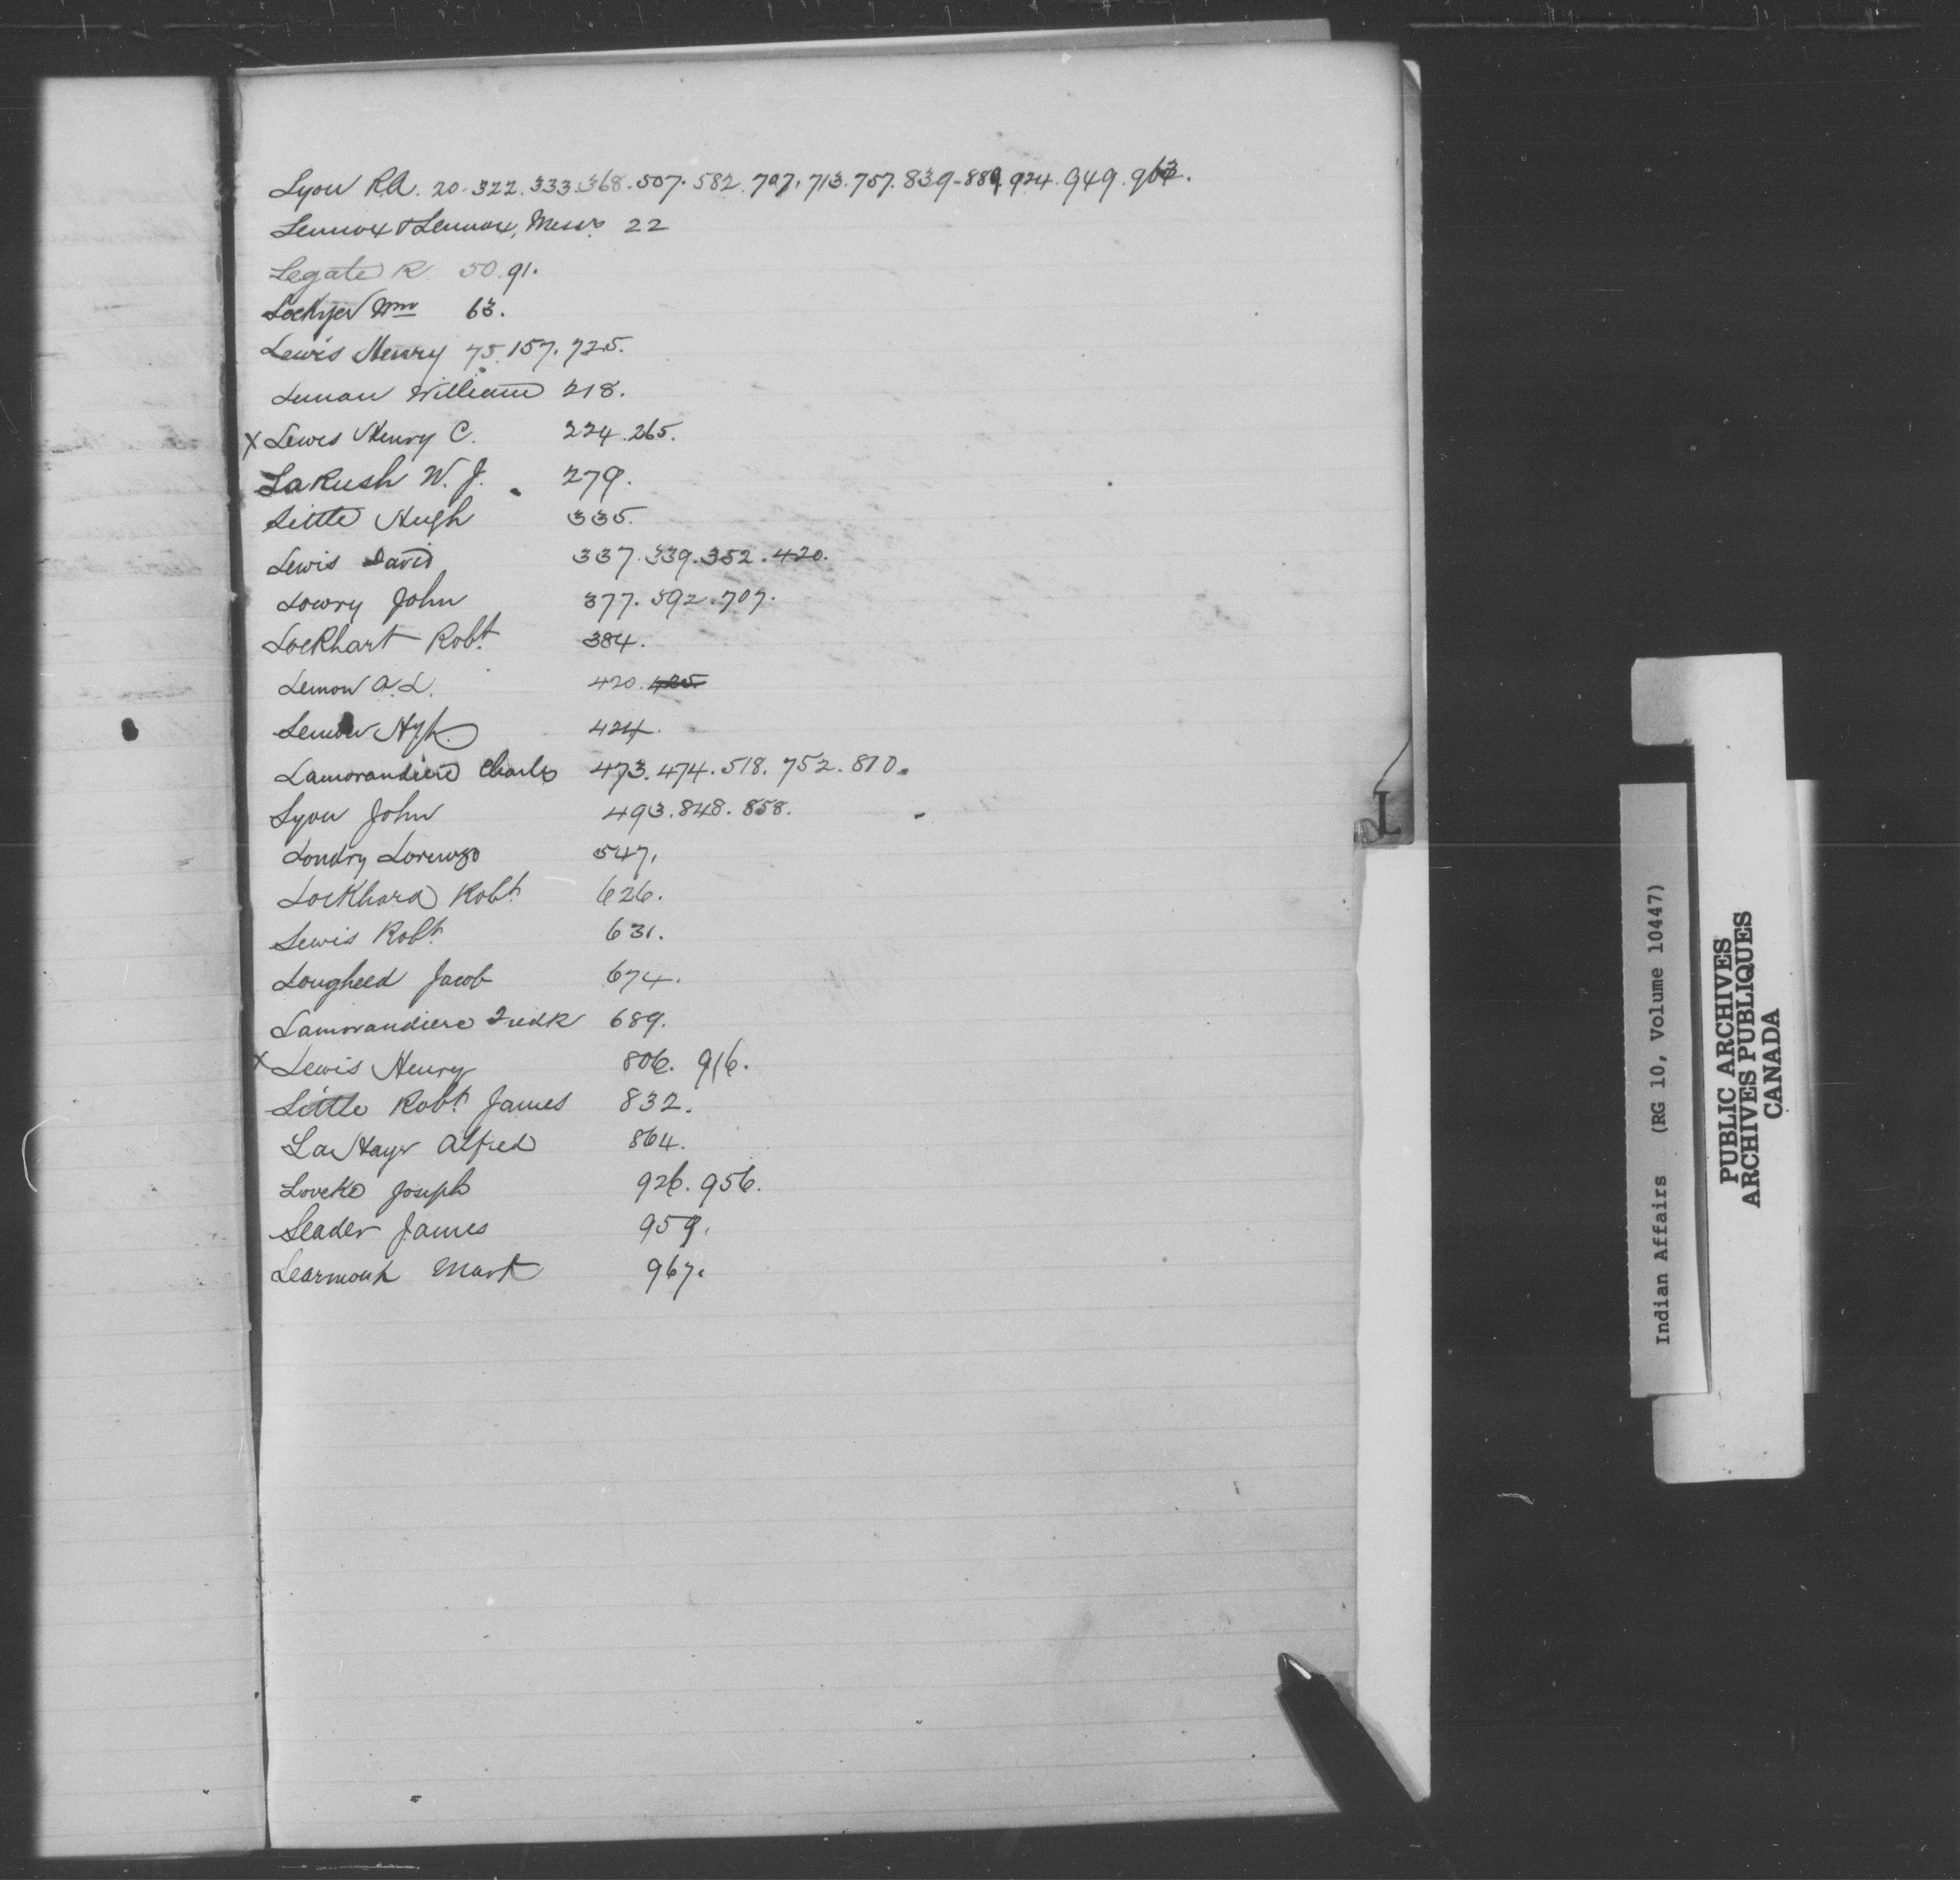 Lyon R.A. 20. 322. 333. 368. 507. 582. 707. 713. 757. 839-889. 924. 949.
Lennox & Lennox, Messrs 22
Legate R. 50. 91.
Lockyer Wm 63.
Lewis Henry 75. 157. 725.
Leman William 218.
x Lewis Henry C. 224. 265.
LaRush W. J. 279.
Little Hugh 335.
Lewis David 337. 339. 352. 420.
Lowry John 377. 592. 707.
Lockhart Robt. 384.
Lemon A. L. 420. 425
Lemon 424.
Lamorandiere Charles 473. 474. 518. 752. 810.
Lyon John 493. 848. 858.
Londry Lorenzo 547.
Lockhard Robt. 626.
Lewis Robt. 631.
Lougheed Jacob 674.
Lamorandiere Fredk 689.
x Lewis Henry 806. 916.
Little Robt. James 832.
LaHaye Alfred 864.
Joseph 926. 956.
Leader James 959.
Learmonth Mark 967.
L
Indian Affairs (RG 10, Volume 10447)
PUBLIC ARCHIVES
ARCHIVES PUBLIQUES
CANADA